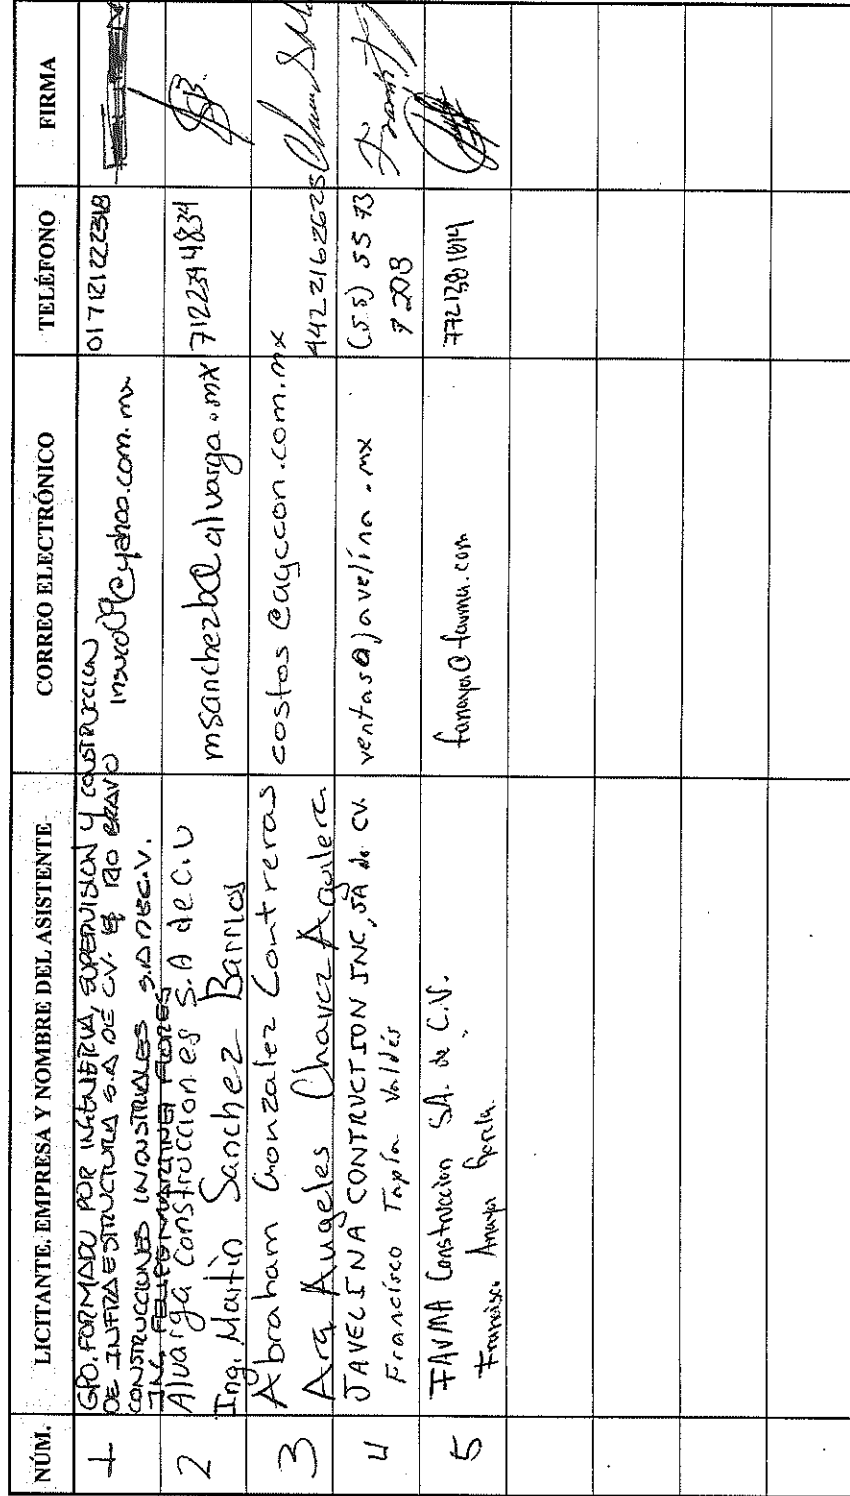 NÚM. LICITANTE, EMPRESA Y NOMBRE DEL ASISTENTE CORREO ELECTRÓNICO TELÉFONO FIRMA
1 GPO. FORMADO POR INGENIERIA, SUPERVISION Y CONSTRUCCION
DE INFRAESTRUCTURA S.A DE C.V. Y RIO BRAVO
CONSTRUCCIONES INDUSTRIALES S.A DE C.V.
ING. FELIPE MARTINEZ FLORES
@yahoo.com.mx 01 712 12 22318
2 Alvarga Construcciones S.A de C.V
Ing. Martin Sanchez Barrios
msanchezb@alvarga.mx 7122944834
3 Abraham Gonzalez Contreras
Arq. Angeles Chavez Aguilera
costos@agccon.com.mx 4422162625
4 JAVELINA CONTRUCTION INC, SA de CV.
Francisco Tapia Valdés
ventas@javelina.mx (55) 55 73
9 203
5 FAVMA Construccion SA. de C.V.
Francisco Amaya García.
famaya@favma.com